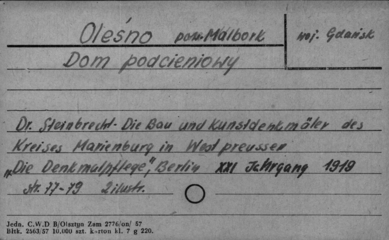 Oleśno pow. Malbork woj. Gdańsk
Dom podcieniowy
Dr. Steinbrecht - Die Bau und Kunstdenkmäler des
Kreises Marienburg in Westpreussen
„Die Denkmalpflege", Berlin XXI Jahrgang 1919
str. 77-79 2 ilustr.
Jedn. C.W.D B/Olsztyn Zam 2776/on/ 57
Bltk. 2563/57 10.000 szt. karton kl. 7 g 220.